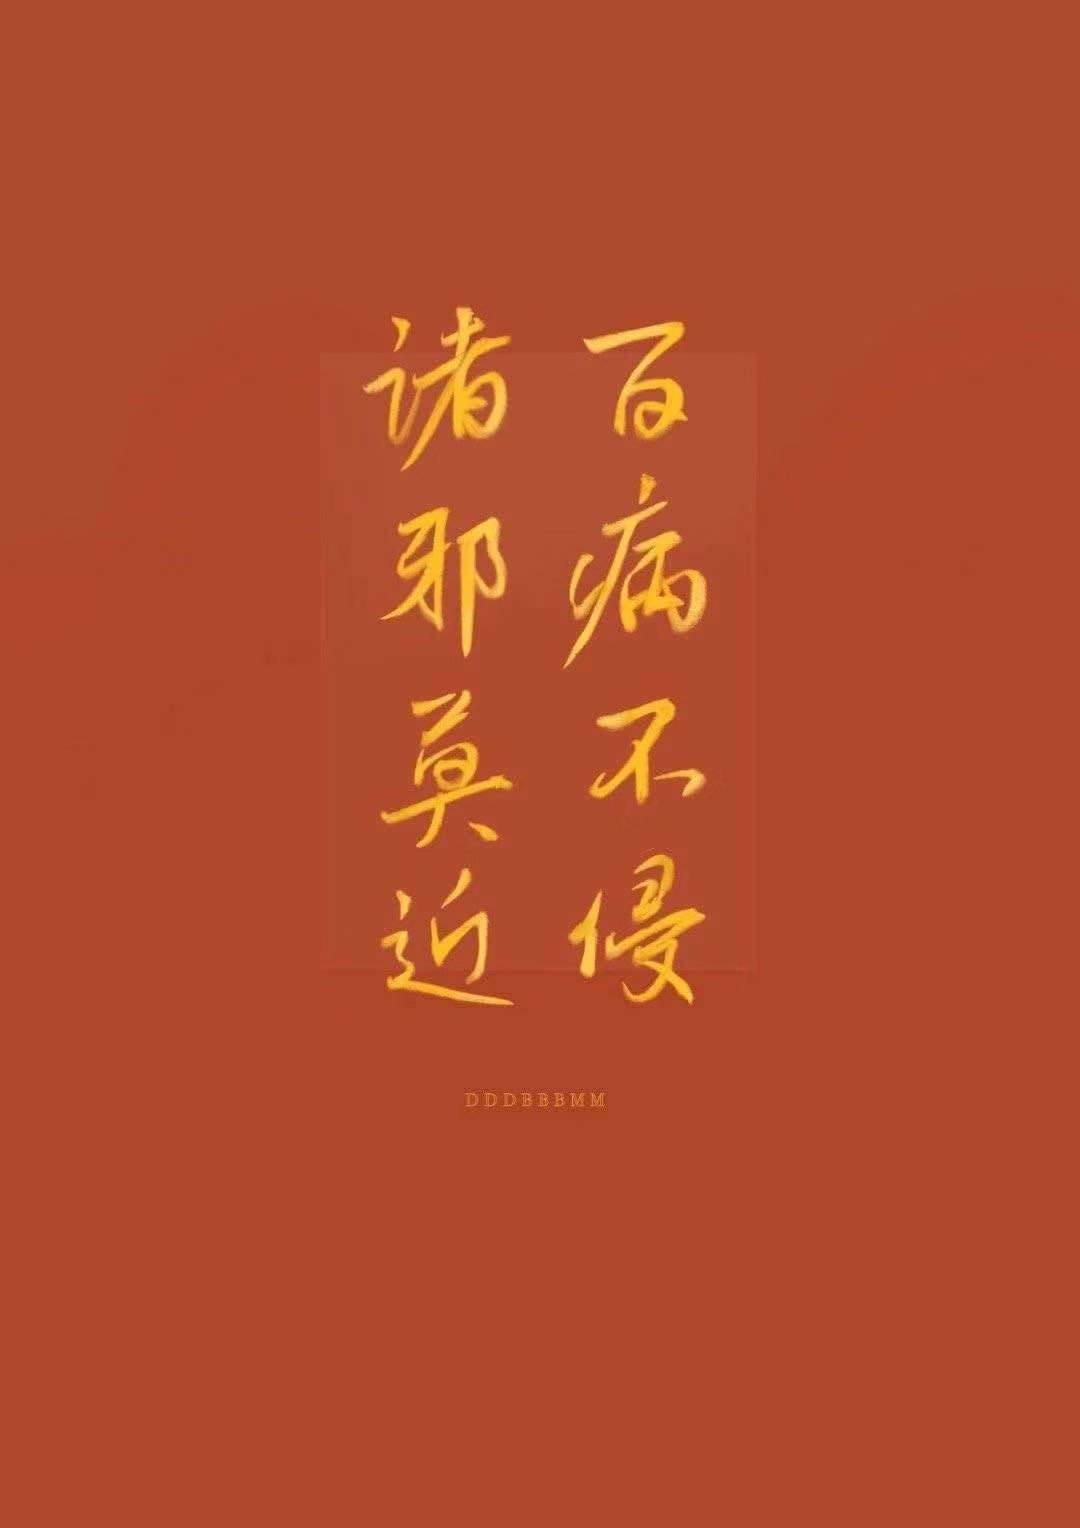 百病不侵
诸邪莫近
DDDBBBMM